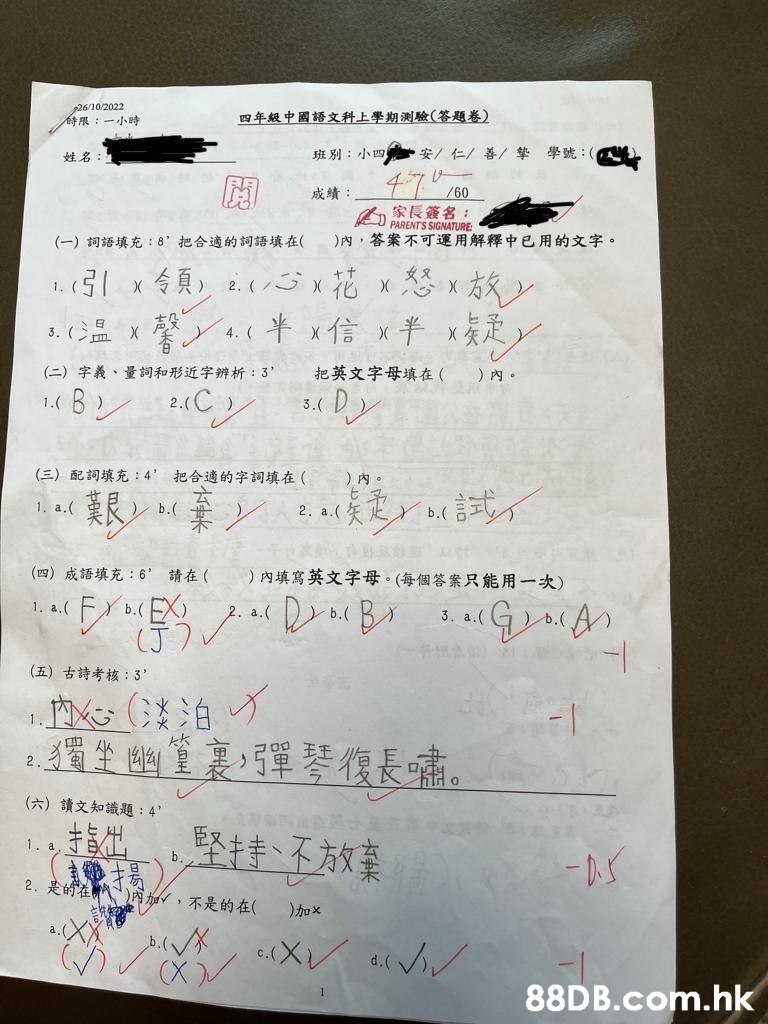 26/10/2022
時限：一小時
四年級中國語文科上學期測驗(答題卷)
姓名：
班別：小四 安/ 仁/ 善/ 摯 學號：( )
成績： 47 /60
家長簽名：
PARENT'S SIGNATURE:
(一) 詞語填充：8' 把合適的詞語填在( )內，答案不可運用解釋中已用的文字。
1. (引)(領) 2. (心)(花)(怒)(放)
3. (溫)(馨) 4. (半)(信)(半)(疑)
(二) 字義、量詞和形近字辨析：3' 把英文字母填在( )內。
1.( B ) 2.( C ) 3.( D )
(三) 配詞填充：4' 把合適的字詞填在( )內。
1. a.( 艱 ) b.( 棄 ) 2. a.( 疑 ) b.( 試 )
(四) 成語填充：6' 請在( )內填寫英文字母。(每個答案只能用一次)
1. a.( F ) b.( E ) 2. a.( D ) b.( B ) 3. a.( G ) b.( A )
(J) -1
(五) 古詩考核：3'
1. 內心 (淡泊) -1
2. 獨坐幽篁裏，彈琴復長嘯。
(六) 讀文知識題：4'
1. a. 指出 b. 堅持、不放棄 -0.5
2. 是的在( )內加✓，不是的在( )加×
a.(X) b.(✓) c.(X) d.(✓)
(✓) (X) -1
1
88DB.com.hk